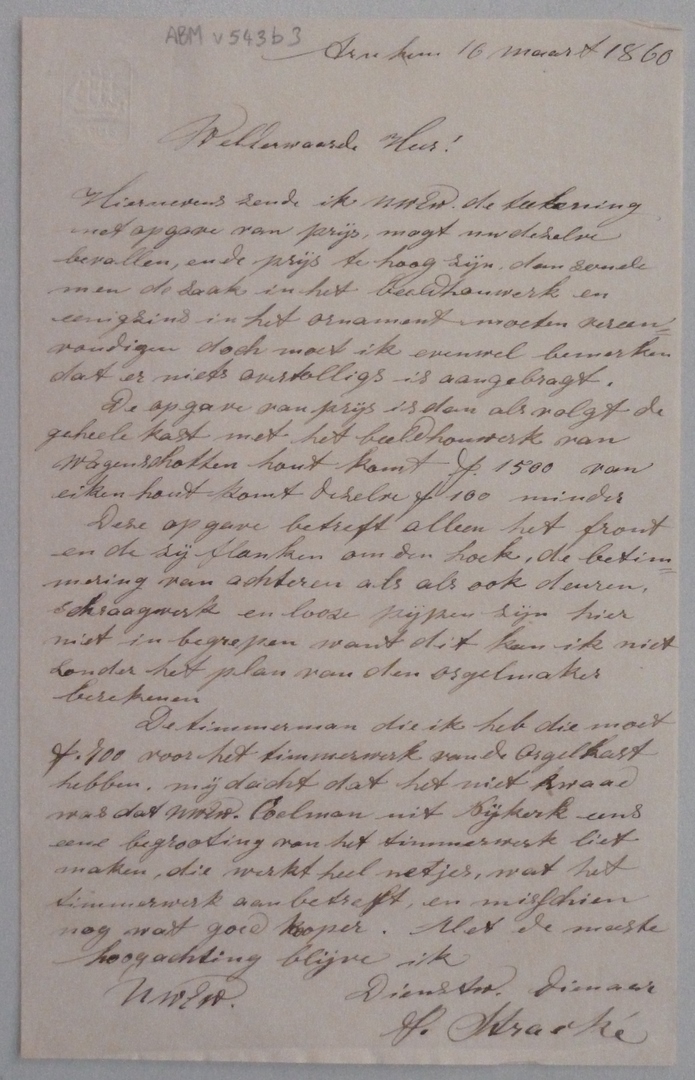 ABM v543b3
Arnhem 16 maart 1860
WelEerwaarde Heer!
Hiernevens zende ik UWEw. de teekening
met opgave van prijs, mogt nu dezelve
bevallen, en de prijs te hoog zijn dan zoude
men de zaak in het beeldhouwerk en
eenigzins in het ornament moeten vereen=
voudigen doch moet ik evenwel bemerken
dat er niets overtolligs is aangebragt.
De opgave van prijs is dan als volgt de
geheele kast met het beeldhouwerk van
Wagenschotten hout komt f. 1500 van
eikenhout komt dezelve f 100 minder
Deze opgave betreft alleen het front
en de zijflanken om den hoek, de betim=
mering van achteren als als ook deuren,
schraagwerk en looze pijpen zijn hier
niet in begrepen want dit kan ik niet
zonder het plan van den orgelmaker
berekenen
De timmerman die ik heb die moet
f. 700 voor het timmerwerk van de orgelkast
hebben. mij dacht dat het niet kwaad
was dat UWEw. Coelman uit Nijkerk eens
eene begrooting van het timmerwerk liet
maken, die werkt heel netjes, wat het
timmerwerk aanbetreft, en misschien
nog wat goed koper. Met de meeste
hoogachting blijve ik
UWEw. Dienstw. Dienaar
Stracké